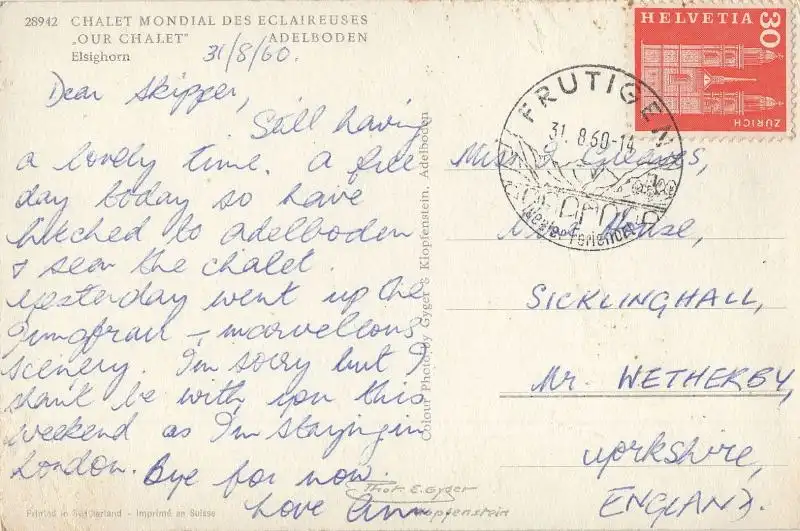 28942 CHALET MONDIAL DES ECLAIREUSES
„OUR CHALET" ADELBODEN
Elsighorn
31/8/60.
Dear Skipper,
Still having
a lovely time. A free
day today so have
hitched to Adelboden
& seen the chalet.
Yesterday went up the
Jungfrau – marvellous
scenery. I'm sorry but I
shan't be with you this
weekend as I'm staying in
London. Bye for now.
Love Ann
Printed in Switzerland - Imprimé en Suisse
Colour Photo by Gyger & Klopfenstein, Adelboden
Phot. E. Gyger
Klopfenstein
HELVETIA 30
ZÜRICH
FRUTIGEN
31. 8.60-14
Ferienort
Miss
House,
SICKLINGHALL,
Nr. WETHERBY,
Yorkshire,
ENGLAND.